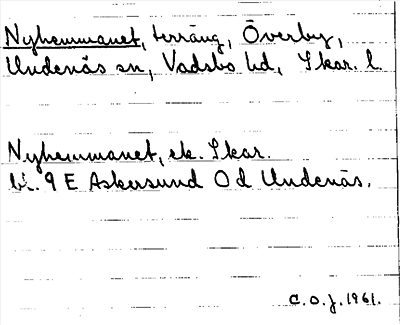 Nyhemmanet, terräng, Överby,
Undenäs sn, Vadsbo hd, Skar. l.
Nyhemmanet, ek. Skar.
bl. 9 E Askersund Od Undenäs.
C.O.J. 1961.